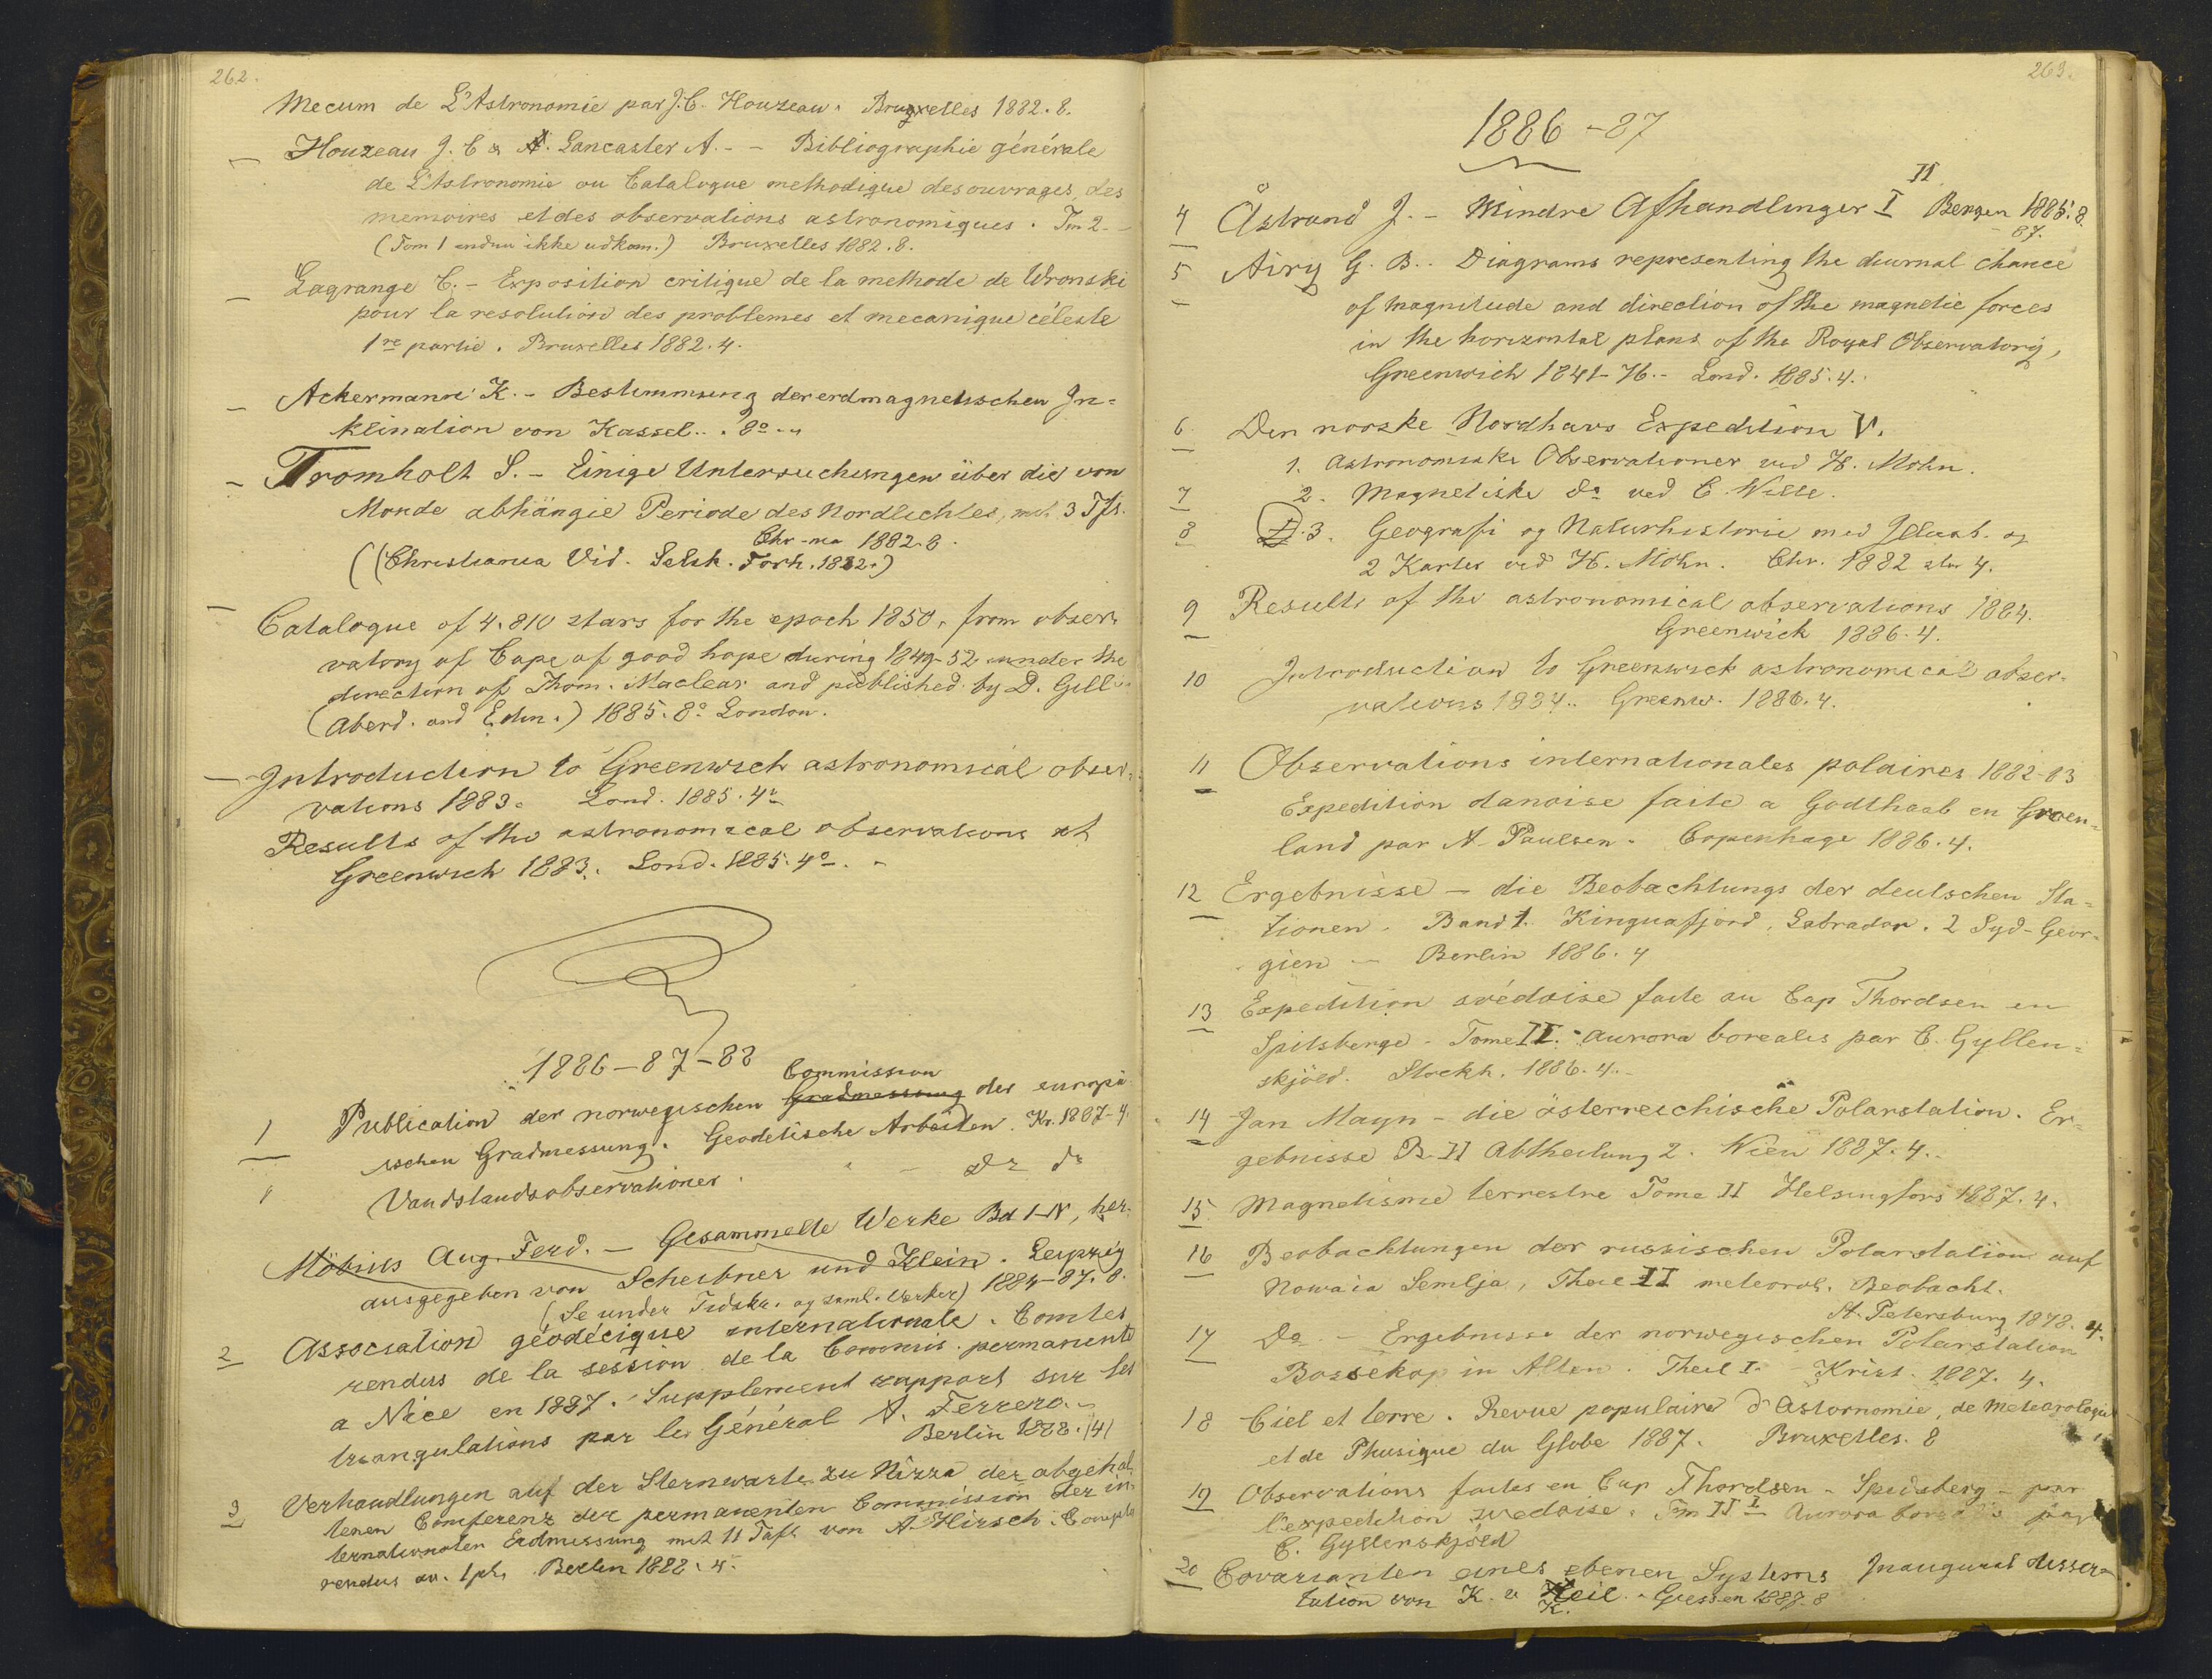 262.
Mecum de L'Astronomie par J. C. Houzeau. Bruxelles 1882. 8.
— Houzeau J. C & A. Lancaster A. - - Bibliographie générale
de L'Astronomie ou Catalogue methodique des ouvrages, des
memoires et des observations astronomiques. Tm 2 -
(Tom 1 endnu ikke udkom.) Bruxelles 1882. 8.
— Lagrange C. - Exposition critique de la methode de Wronski
pour la resolution des problemes et mecanique céleste
1re partie. Bruxelles 1882. 4.
— Ackermann K. - Bestimmung der erdmagnetischen In=
klination von Kassel. . 8º. "
— Tromholt S. - Einige Untersuchungen über die von
Monde abhängie Periode des Nordlichtes, mit 3 Tfl.
Chr-na 1882. 8.
((Christiania Vid. Selsk. Forh. 1882.)
— Catalogue of 4.810 stars for the epoch 1850, from obser-
vatory of Cape of good hope during 1849-52 under the
direction of Thom. Maclear and published by D. Gill
(Aberd. and Edin.) 1885. 8º London.
— Introduction to Greenwich astronomical obser-
vations 1883. Lond. 1885. 4º
Results of the astronomical observations at
Greenwich 1883. Lond. 1885. 4º. -
1886-87-88
Commission
1 Publication der norwegischen Gradmessung der europä
ischen Gradmessung. Geodetische Arbeiten. Kr. 1887-4
" Vandstandsobservationer. " - Do do
Möbius Aug. Ferd. — Gesammelte Werke Bd I-IV, her-
ausgegeben von Scheibner und Klein. Leipzig
(Se under Tidskr. og saml. Verker) 1884-87. 8.
2 Association géodécique internationale. Comtes
rendus de la session de la Commis. permanente
a Nice en 1887. Supplement rapport sur les
triangulations par le Général A. Ferrero. -
Berlin 1888. (4)
3 Verhandlungen auf der Sternwarte zu Nizza der abgehal
tenen Conferenz der permanenten Commission der in-
ternationalen Erdmessung mit 11 Tafl. von A. Hirsch. Compte
rendus Berlin 1888. 4.
263.
1886-87
4 Åstrand J. - Mindre Afhandlinger I II Bergen 1885. 8.
- 87.
5 Airy G. B. . Diagrams representing the diurnal chance
— of magnitude and direction of the magnetic forces
in the horizontal plans of the Royal Observatory,
Greenwich 1841-76. - Lond. 1885. 4.
6. Den norske Nordhavs Expedition V.
1. Astronomiske Observationer ved H. Mohn.
7 2. Magnetiske do ved C. Wille.
8 3. Geografi og Naturhistorie med Illust. og
2 Karter ved H. Mohn. Chr. 1882 4.
9 Results of the astronomical observations 1884.
Greenwich 1886. 4.
10 Introduction to Greenwich astronomical obser-
vations 1884. . Greenw. 1886. 4.
11 Observations internationales polaires 1882-83
Expedition danoise faite a Godthaab en Groen=
land par A. Paulsen. Copenhage 1886. 4.
12 Ergebnisse - die Beobachtungs der deutschen Sta=
tionen. Band 1. Kinguafjord, Labrador. 2 Syd-Geor-
gien — Berlin 1886. 4
13 Expedition svédoise faite au Cap Thordsen en
Spitsberge - Tome II. - Aurora boreales par C. Gyllen=
skjöld. Stockh. 1886. 4. -
14 Jan Mayn - die österreichische Polarstation. Er=
gebnisse B. II Abtheilung 2. Wien 1887. 4. -
15. Magnetisme terrestre Tome II Helsingfors 1887. 4.
16 Beobachtungen der russischen Polarstation auf
Nowaia Semlja, Theil II meteorol. Beobacht.
St. Petersburg 1878. 4.
17 Do. - Ergebnisse der norwegischen Polarstation
Bossekop in Alten. Theil I. - Krist. 1887. 4.
18 Ciel et terre. Revue populaire d'Astornomie, de Meteorologie
et de Phusique du Globe 1887. Bruxelles. 8
19 Observations faites en Cap Thordsen - Speidsberg - par
l'expedition svedoise. Tm II I Aurora
C. Gyllenskjöld
20 Covarianten eines ebenen Systems Inaugural disser-
tation von K. v Keil. - Giessen 1887. 8
K.